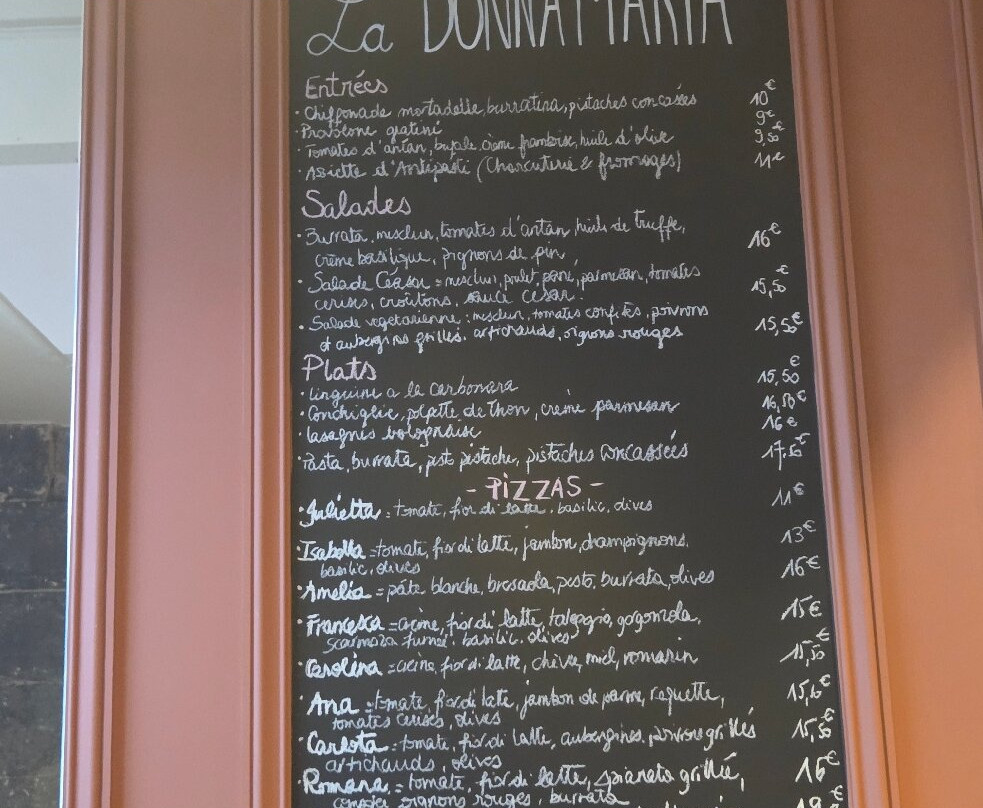 La DONNAMARIA
Entrées
· Chiffonade mortadelle, burratina, pistaches concassées 10€
· Provolone gratiné 9€
· Tomates d'antan, bufale, crème framboise, huile d'olive 9,50€
· Assiette d'Antipasti (Charcuterie & fromages) 11€
Salades
· Burrata, mesclun, tomates d'antan, huile de truffe, 16€
crème basilique, pignons de pin,
· Salade César = mesclun, poulet pané, parmesan, tomates 15,50€
cerises, croûtons, sauce cesar.
· Salade vegetarienne : mesclun, tomates confites, poivrons 15,50€
et aubergines grillés, artichauds, oignons rouges
Plats
· linguine a la carbonara 15,50€
· Conchiglie, polpette de thon, crème parmesan 16,50€
· lasagnes bolognaise 16€
· Pasta, burrata, pesto pistache, pistaches concassées 17,50€
- PIZZAS -
· Julietta = tomate, fior di latte, basilic, olives 11€
· Isabella = tomate, fior di latte, jambon, champignons, 13€
basilic, olives
· Amelia = pâte blanche, bresaola, pesto, burrata, olives 16€
· Francesca = crème, fior di latte, taleggio, gogonzola, 15€
scarmoza fumée, basilic, olives
· Carolina = crème, fior di latte, chèvre, miel, romarin 15,50€
· Ana = tomate, fior di latte, jambon de parme, roquette, 15,50€
tomates cerises, olives
· Carlota = tomate, fior di latte, aubergines, poivrons grillés 15,50€
artichauds, olives
· Romana = tomate, fior di latte, spianata grillé, 16€
oignons rouges, burrata